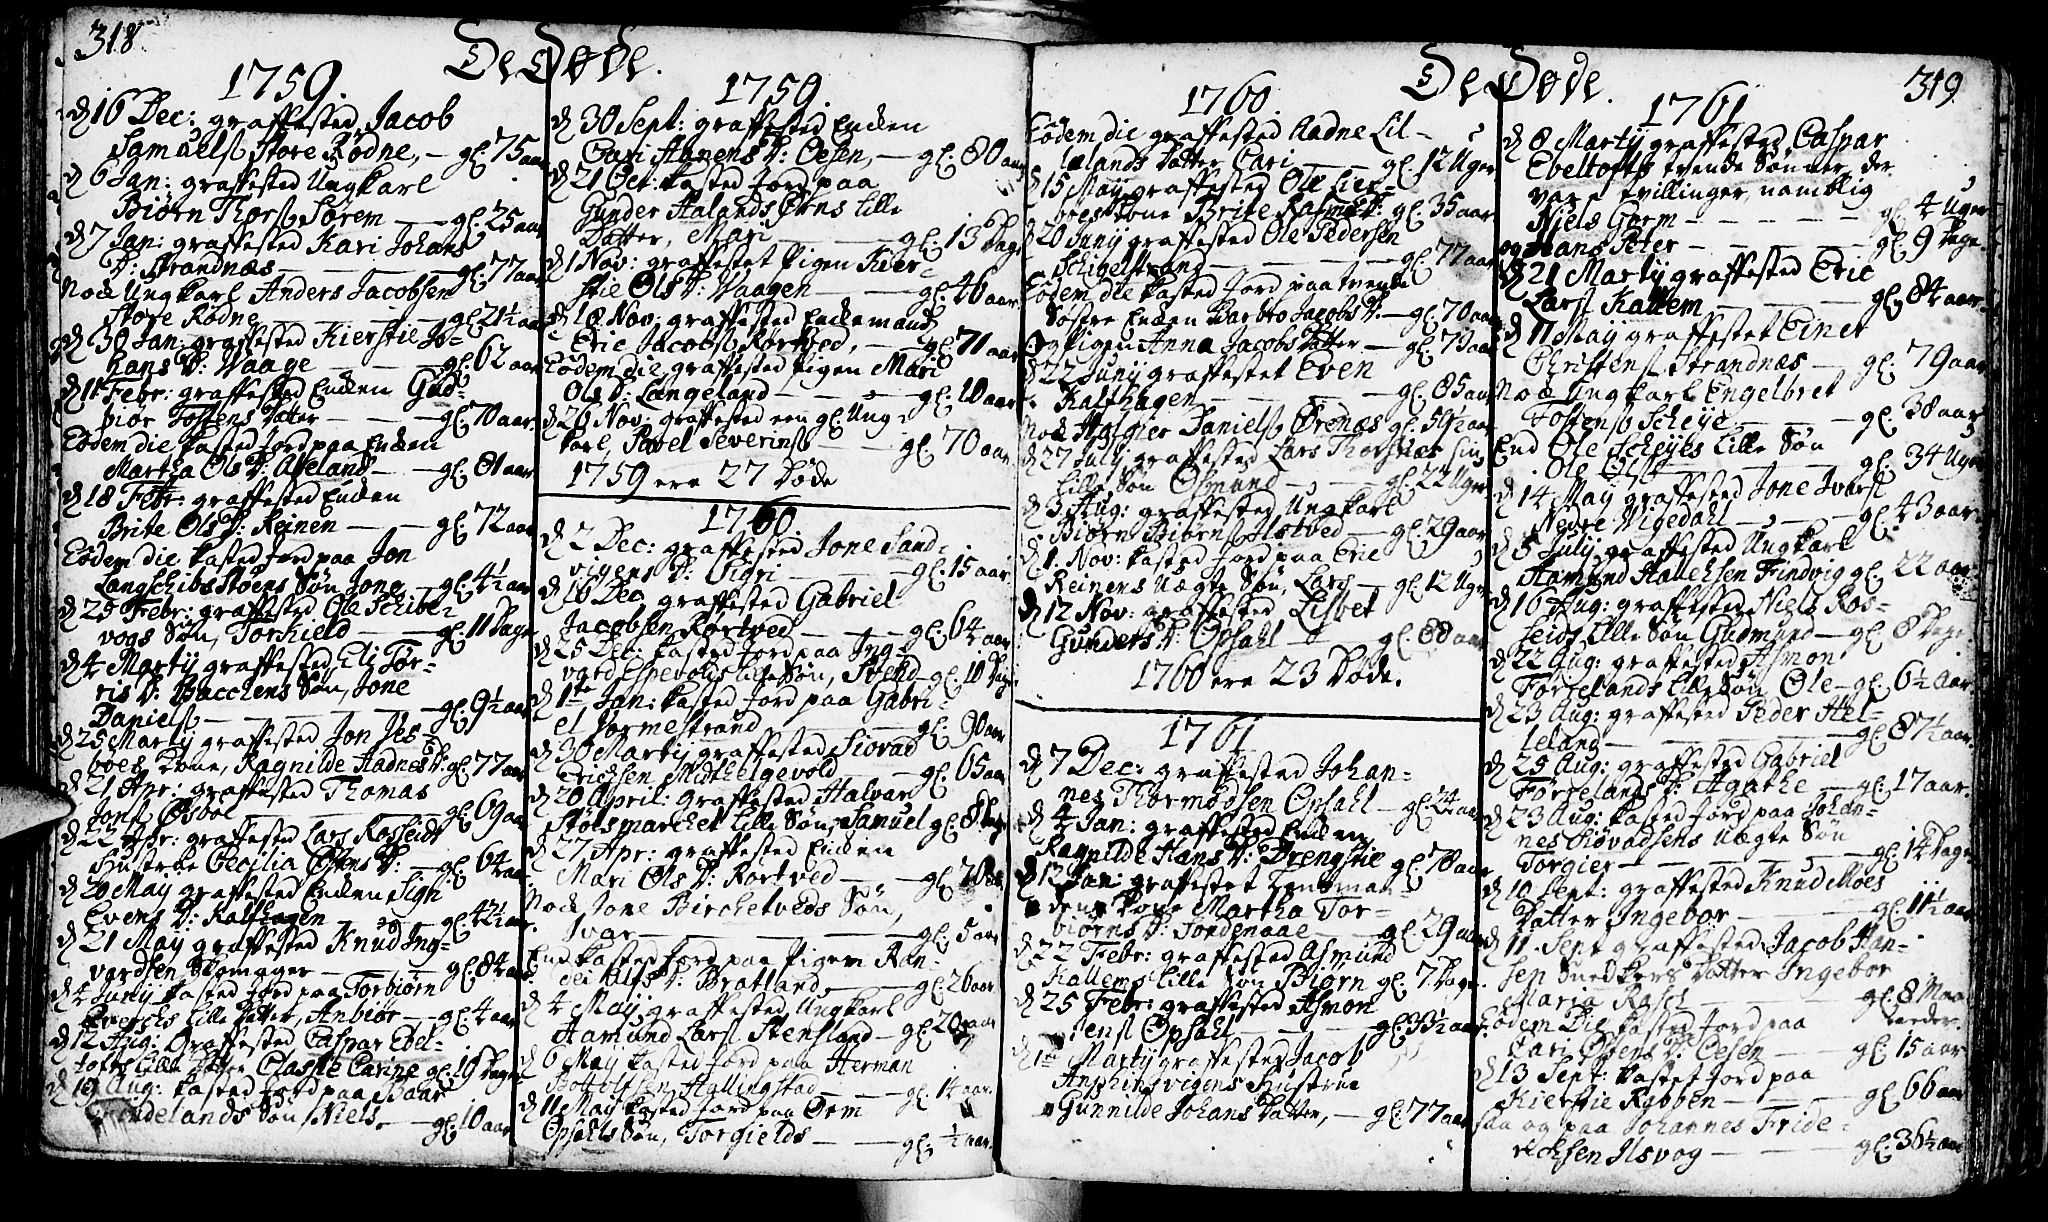 318.
De Døde.
1759.
d 16 Dec: graffested Jacob
Samuels Store Rødne, — gl. 75 aar
d 6 Jan: graffested Ungkarl
Biørn Thors Sørem — gl. 25 aar
d 7 Jan: graffested Kari Johans
D: Strandnæs — gl. 77 aar
Nock Ungkarl Anders Jacobsen
Store Rødne — gl. 21½ aar
d 30 Jan: graffested Kierstie Jo-
hans D: Waage — gl. 62 aar
d 11 Febr: graffested Encken Gud-
biør Tostens Datter — gl. 70 aar.
Eodem die kasted Jord paa Encken
Martha Ols D: Aseland — gl. 81 aar
d 18 Febr: graffested Encken
Brite Ols D: Reinen — gl. 72 aar
Eodem die kasted Jord paa Jon
Langschibs Støens Søn Jone — gl. 4½ aar
d 25 Febr: graffested Ole Schibe-
vogs Søn, Torkield — gl. 11 Dage
d 4 Martij graffested Eli Tør-
ris D: Bacchens Søn, Jone
Daniels — gl. 9½ aar
d 25 Martij graffested Jon Jes-
boes Kone, Ragnilde Aadnes D: gl. 77 aar
d 21 Apr: graffested Thomas
Jons Øsboe — gl. 69 aar
d 22 Apr: graffested Lars Rosseidt
Hustrue Cecilia Ottens D: — gl. 64 aar
d 20 May graffested Encken Sigri
Evens D: Kalfhagen — gl. 42½ aar.
d 21 May graffested Knud Ing-
vardsen Skomager — gl. 84 aar
d 4 Junij kasted Jord paa Torbiørn
lille Datter, Anbiør — gl. 4 aar
d 12 Aug: Graffested Caspar Ebel-
tofts lille Datter Claske Carine gl. 19 Dage
d 19 Aug: kasted Jord paa Baar
Søn Niels. — gl. 10 aar
1759.
d 30 Sept: graffested Encken
Cari Aanens D: Oesen, — gl. 80 aar
d 21 Oct: kasted Jord paa
Gunder Aalands Ørns lille
Datter, Mari — gl. 13 Dage
d 1 Nov: graffestet Pigen Kier-
stie Ols D: Waagen — gl. 46 aar.
d 18 Nov: graffested Enckemand
Eric Jacobs Rørtved, — gl. 71 aar
Eodem die, graffested Pigen Mari
Ols D: Langeland — gl. 10 aar
d 26 Nov: graffested een gl. Ung-
karl, Povel Severins — gl. 70 aar
1759 ere 27 Døde
1760.
d 2 Dec: graffested Jone Sand-
vigens D: Sigri — gl. 15 aar.
d 16 Dec graffested Gabriel
Jacobsen Rørtved — gl. 64 aar
d 25 Dec: kasted Jord paa Ing-
vard Espevolds lille Søn, Svend — gl. 10 Dage.
d 1te Jan: kasted Jord paa Gabri-
el Vormestrand — gl. 90 aar
d 30 Martij graffested Siovard
Erichsen Midthelgevold — gl. 65 aar
d 20 April: graffested Halvar
Stølsmarchet lille Søn, Samuel gl. 8 Dage
d 27 Apr: graffested Encken
Mari Ols D: Rørtved — gl. 70 aar
Nock Jone Birchetveds Søn,
Ivar — gl. 5 aar
End kasted Jord paa Pigen Ran-
dei Alfs D: Bratland, — gl. 26 aar
d 4 Maij graffested Ungkarl
Aamund Lars Stensland — gl. 20 aar
d 6 Maij kasted Jord paa Herman
Botolfsen Hallingstad — gl. 14 aar.
d 11 Maij kasted Jord paa Orm
Opsahls Søn, Torgields — gl. ½ aar.
De Døde.
319
1760.
Eodem die graffested Aadne Lil-
lelands Datter Cari — gl. 12 Uger
d 15 Maij graffested Ole Lier-
boes Kone Brite Rasmus D: gl. 35 aar
d 20 Junij graffested Ole Pedersen
Schigelstrand — gl. 77 aar
Eodem die kasted Jord paa tvende
Søstre Encken Barbro Jacobs D: — gl. 70 aar
Og Pigen Anna Jacobs Datter — gl. 73 aar
d 22 Junij graffestet Even
Kalfhagen — gl. 85 aar
Nock Asgier Daniels Ørenæs gl. 59½ aar
d 27 Julij graffested Lars Thorsnæs sin
lille Søn Osmund — gl. 22 Uger
d 3 Aug: graffested Ungkarl
Biørn Biørns Østved — gl. 29 aar
d 1. Nov: kasted Jord paa Eric
Reiners Uægte Søn, Lars — gl. 12 Uger
d 12 Nov: graffested Lisbet
Gunders D: Opsahl — gl. 88 aar
1760 ere 23 Døde.
1761
d 7 Dec: graffested Johan-
nes Thormodsen Opsahl — gl. 24 aar
d 4 Jan: graffested Encken
Ragnilde Hans D: Drengstie gl. 78 aar
d 12 Jan: graffestet Lensman-
dens Kone Martha Tor-
biørns D: Tordenaae — gl. 29 aar
d 22 Febr: graffested Asmund
Kallems lille Søn Biørn gl. 7. Dage.
d 25 Febr: graffested Asmon
Jens Opsahl — gl. 33½ aar
d 1te Martij graffested Jacob
Ansphinsvigens Hustrue
Gunnilde Johans Datter, — gl. 77 aar
1761
d 8 Martij graffestes Caspar
Ebeltofts tvende Sønner der
vare tvillinger, namblig
Niels Gorm — gl. 4 Uger
og Hans Peter — gl. 9 Dage
d 21 Martij graffested Eric
Lars Kallem — gl. 84 aar
d 11 Maij graffestet Einer
Christens Strandnæs — gl. 79 aar
Nock Ungkarl Engelbret
Tostens Scheije — gl. 38 aar
End Ole Scheijes lille Søn
Ole Ols — gl. 34 Uger
d 14 Maij graffested Jone Ivars
Nedre Vigedahl — gl. 43 aar.
d 5 Julij graffested Ungkarl
Aamund Halleksen Findvig gl. 22 aar.
d 16 Aug: graffested Niels Ros-
seids lille Søn Gudmund — gl. 8 Dage.
d 22 Aug: graffested Asmon
Førrelands lille Søn Ole — gl. 6½ aar
d 23 Aug: graffested Peder Hel-
leland — gl. 87½ aar.
d 25 Aug: graffested Gabriel
Førrelands D: Agathe — gl. 17 aar.
d 23 Aug: kasted Jord paa Johan-
nes Siovadsens Uægte Søn
Torgier — gl. 14 Dage
d 10 Sept: graffested Knud Moes
Datter Ingebor — gl. 11½ aar
d 11 Sept graffested Jacob Han-
sen Snedkers Datter Ingebor
Maria Rasel — gl. 8 Maa
neder.
Eodem Die kasted Jord paa
Cari Ottens D: Oesen — gl. 15 aar
d 13 Sept: kastet Jord paa
Kierstie Rybben — gl. 66 aar
saa og paa Johannes Fride-
richsen Ilsvog — gl. 36½ aar